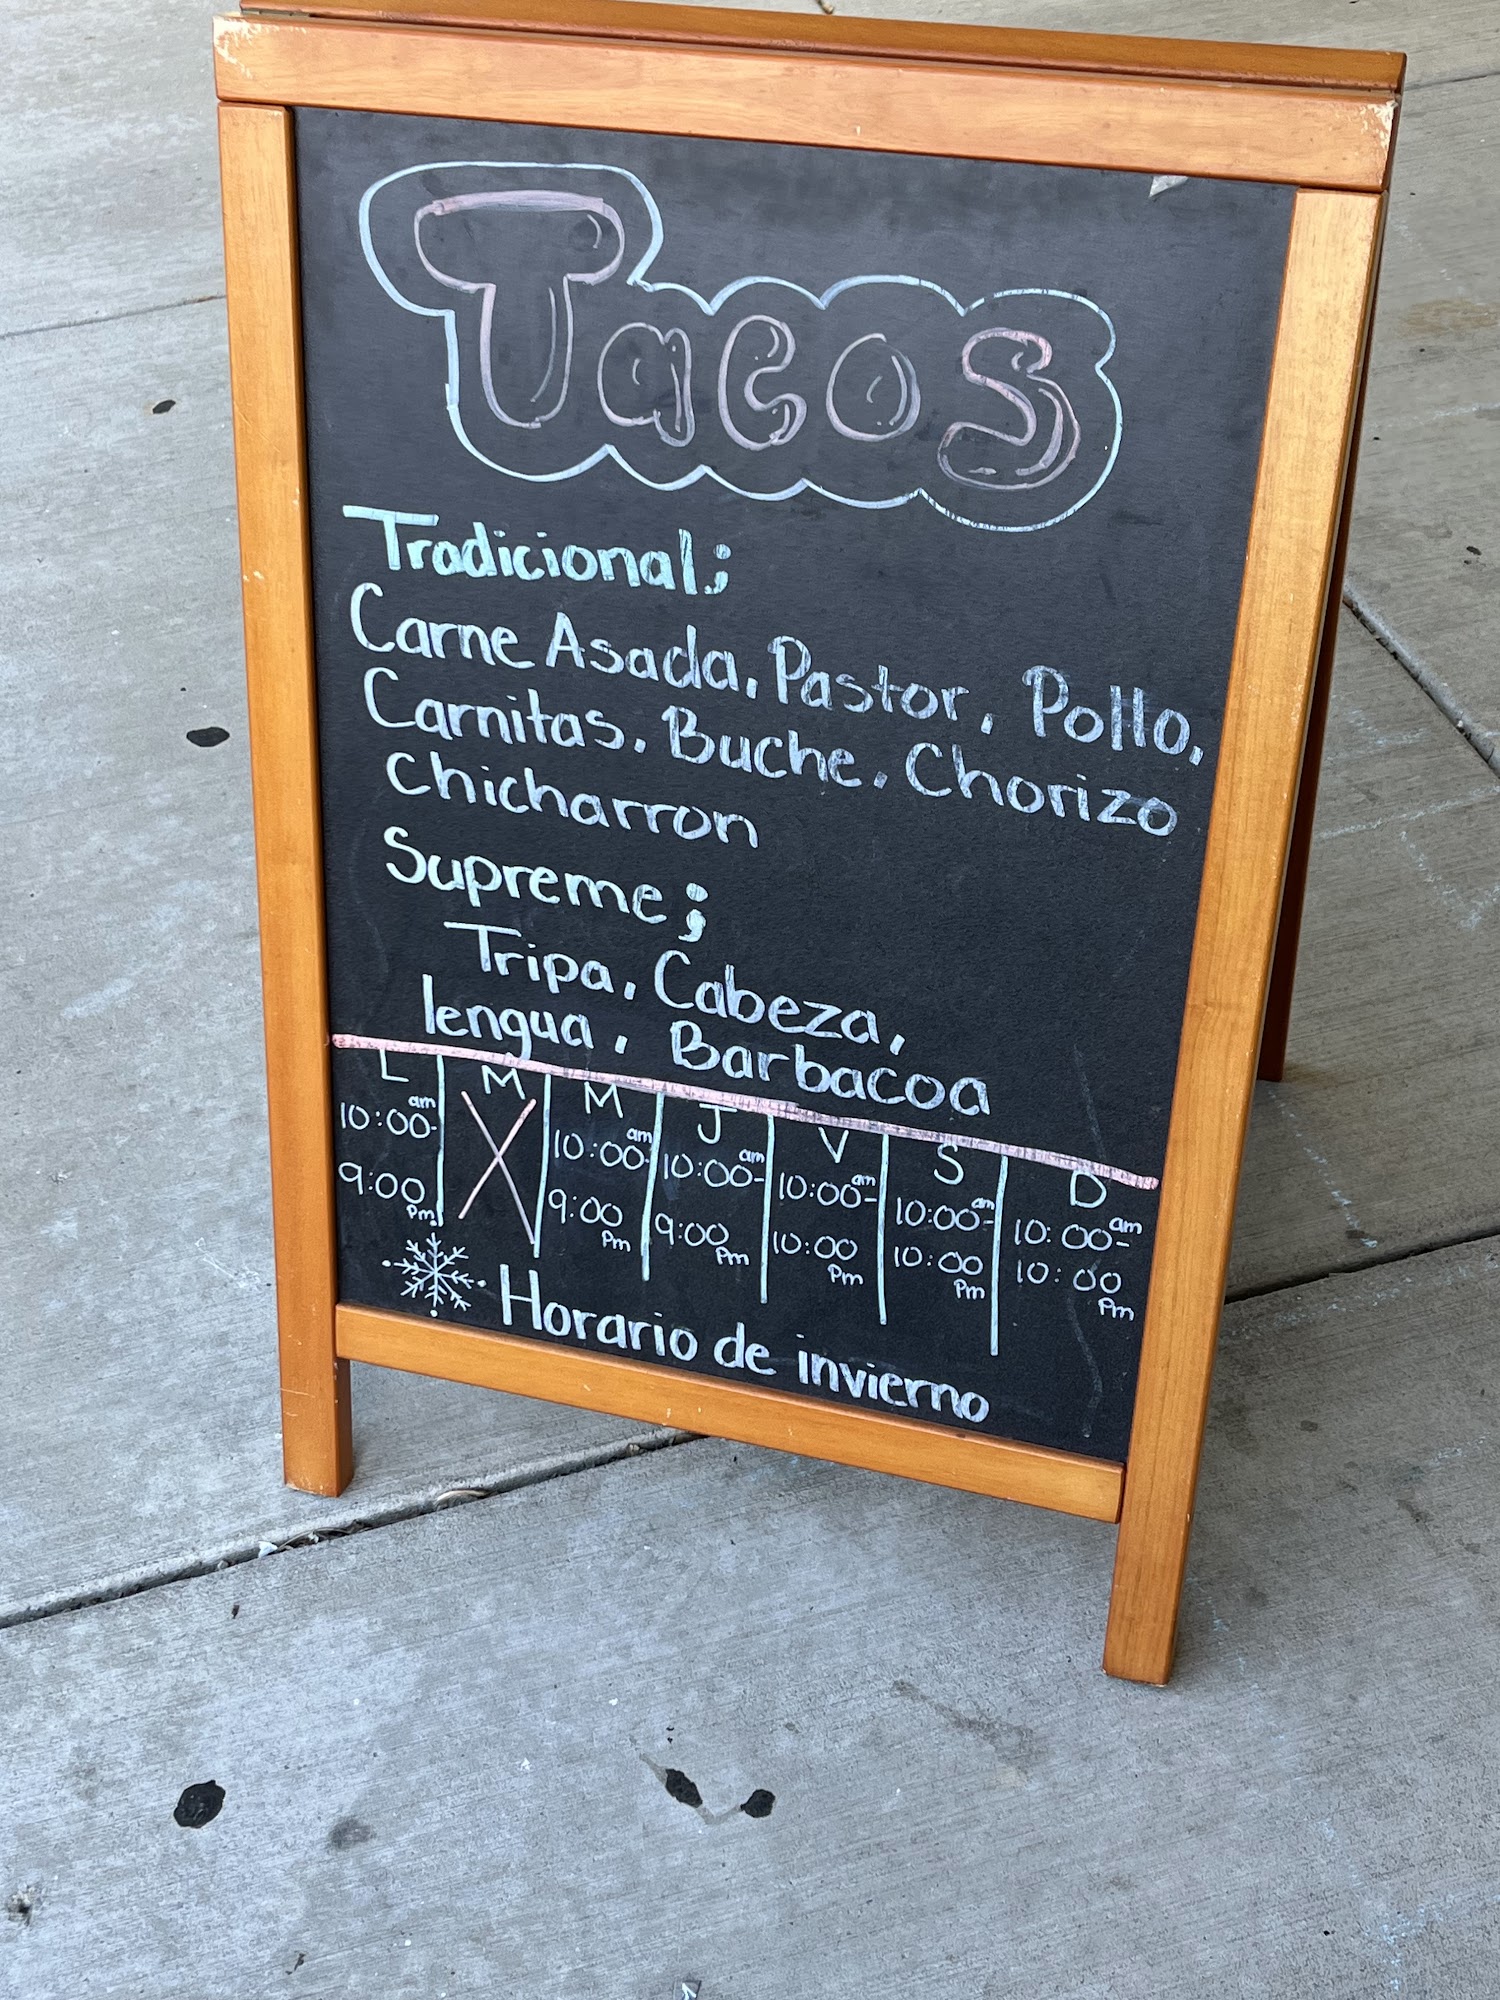 Tacos
Tradicional;
Carne Asada, Pastor, Pollo,
Carnitas, Buche, Chorizo
chicharron
Supreme;
Tripa, Cabeza,
lengua, Barbacoa
L M M J V S D
10:00am- X 10:00am- 10:00am- 10:00am- 10:00am- 10:00am-
9:00pm 9:00pm 9:00pm 10:00pm 10:00pm 10:00pm
Horario de invierno